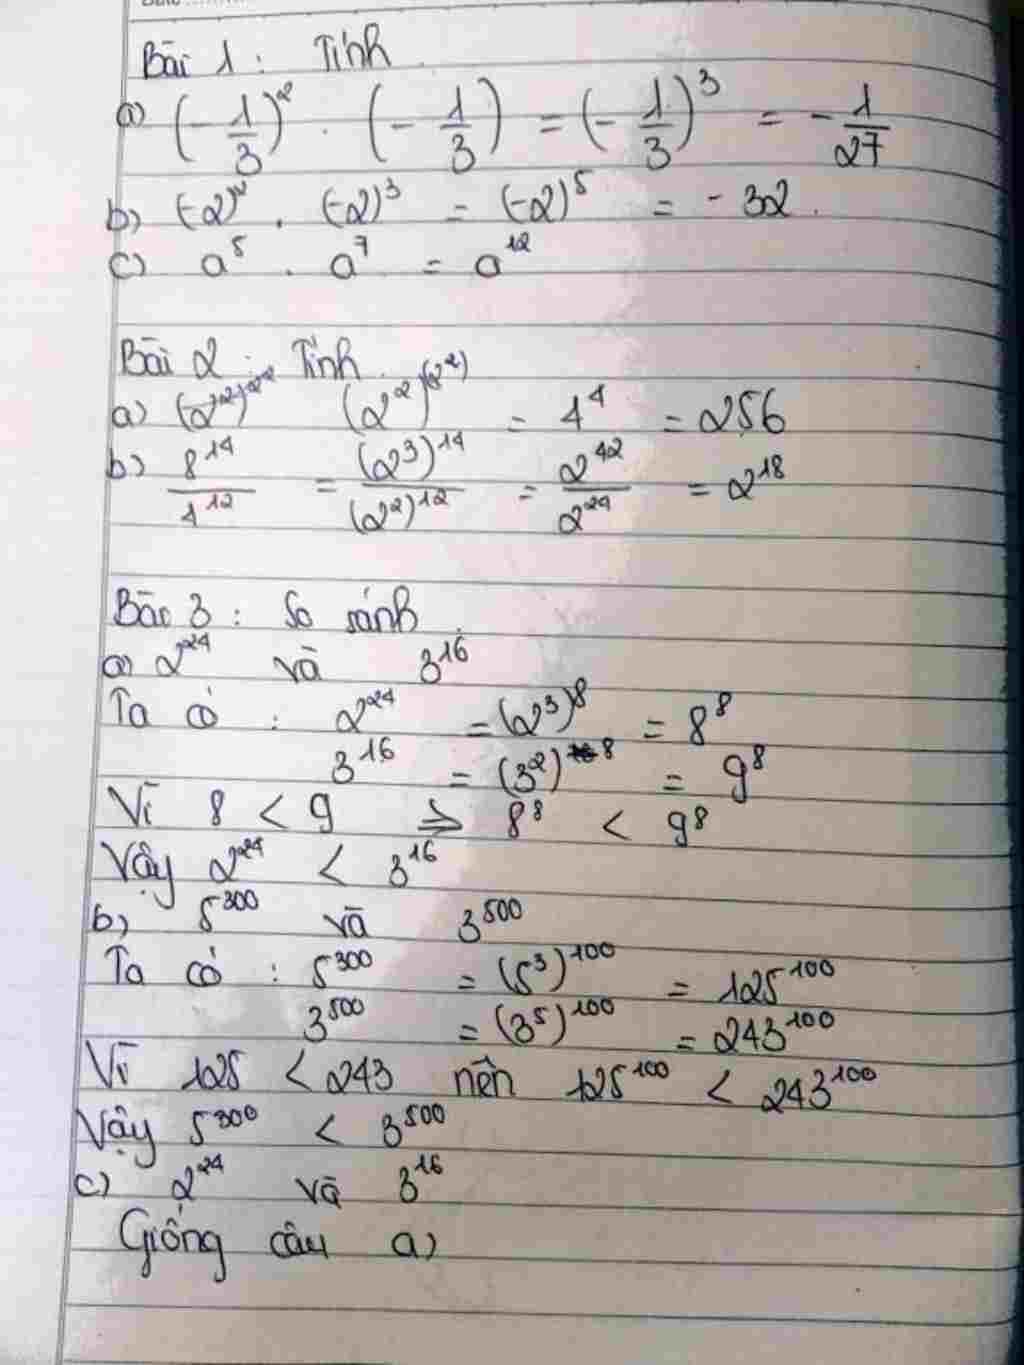 Bài 1 : Tính
a) (-1/3)² . (-1/3) = (-1/3)³ = -1/27
b) (-2)² . (-2)³ = (-2)⁵ = -32.
c) a⁵ . a⁷ = a¹²
Bài 2 : Tính
a) (2²)^(2²) = 4⁴ = 256
b) 8¹⁴/4¹² = (2³)¹⁴/(2²)¹² = 2⁴²/2²⁴ = 2¹⁸
Bài 3 : So sánh
a) 2²⁴ và 3¹⁶
Ta có : 2²⁴ = (2³)⁸ = 8⁸
3¹⁶ = (3²)⁸ = 9⁸
Vì 8 < 9 => 8⁸ < 9⁸
Vậy 2²⁴ < 3¹⁶
b) 5³⁰⁰ và 3⁵⁰⁰
Ta có : 5³⁰⁰ = (5³)¹⁰⁰ = 125¹⁰⁰
3⁵⁰⁰ = (3⁵)¹⁰⁰ = 243¹⁰⁰
Vì 125 < 243 nên 125¹⁰⁰ < 243¹⁰⁰
Vậy 5³⁰⁰ < 3⁵⁰⁰
c) 2²⁴ và 3¹⁶
Giống câu a)